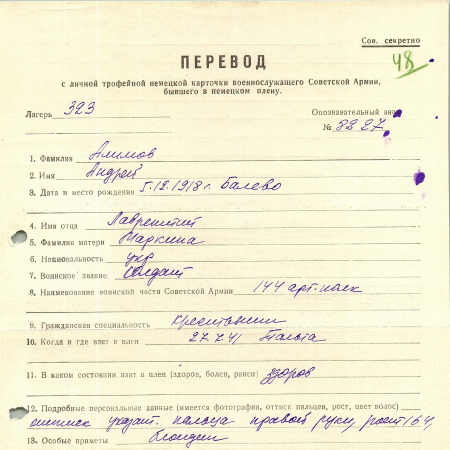 Сов. секретно
48
ПЕРЕВОД
с личной трофейной немецкой карточки военнослужащего Советской Армии,
бывшего в немецком плену.
Лагерь 323
Опознавательный знак
№ 3227
1. Фамилия Алимов
2. Имя Андрей
3. Дата и место рождения 5.12.1918 г. Балево
4. Имя отца Лаврентий
5. Фамилия матери Маркина
6. Национальность укр
7. Воинское звание солдат
8. Наименование воинской части Советской Армии 144 арт. полк
9. Гражданская специальность крестьянин
10. Когда и где взят в плен 27.7.41 Тальта
11. В каком состоянии взят в плен (здоров, болен, ранен) здоров
12. Подробные персональные данные (имеется фотография, оттиск пальцев, рост, цвет волос)
оттиск указат. пальца правой руки, рост 164,
13. Особые приметы блондин